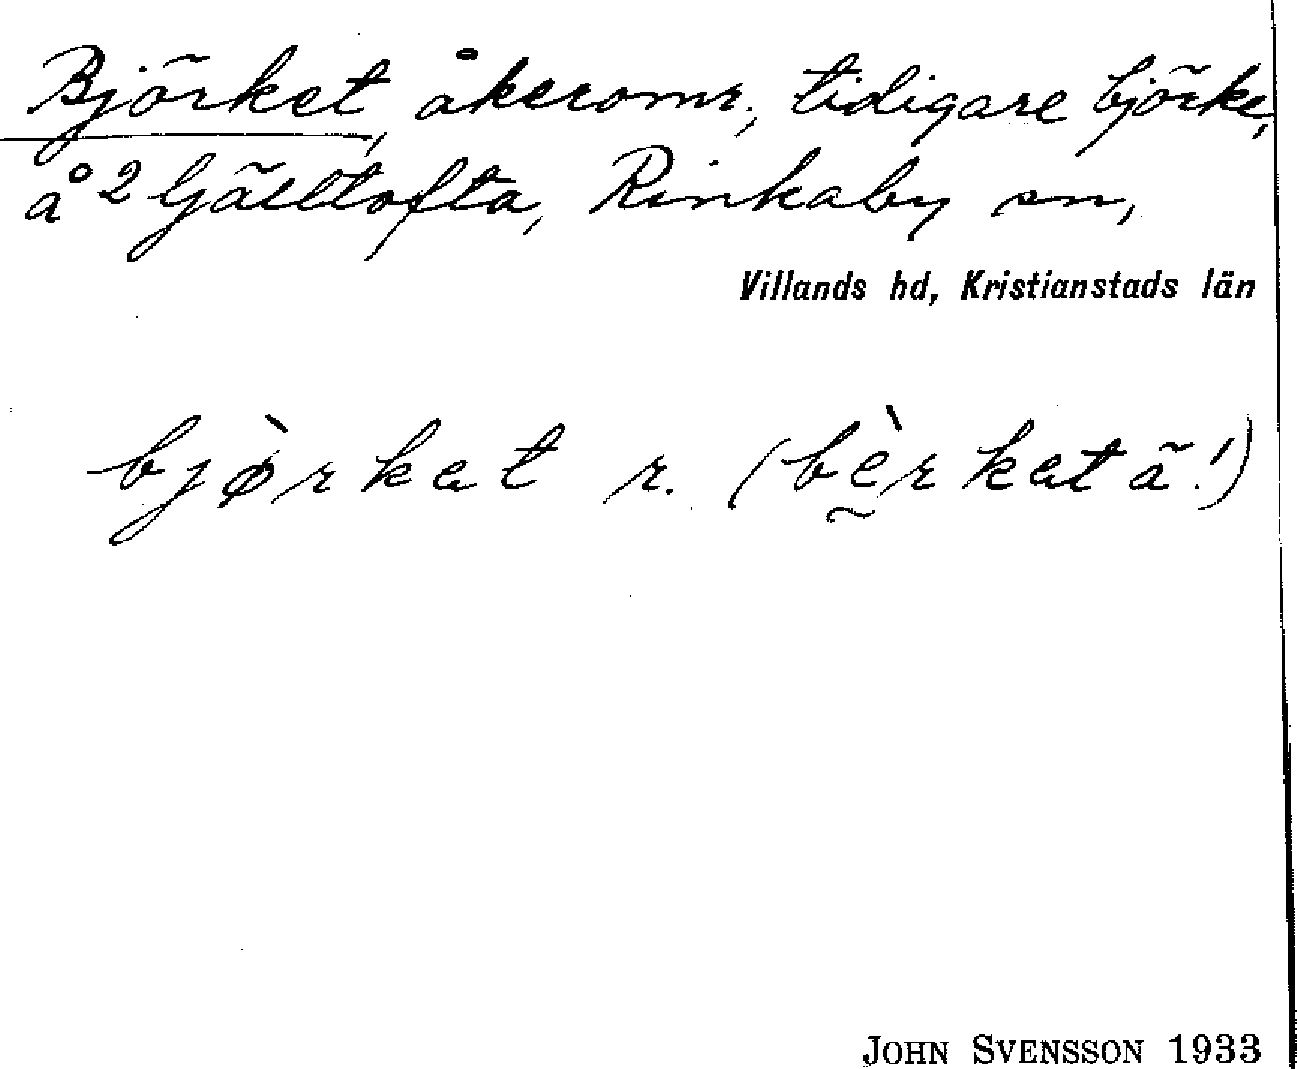 Björket, åkeromr., tidigare björke,
å 2 Gjälltofta, Rinkaby sn,
Villands hd, Kristianstads län
bjø̀rkat r. (bḛ̀rkatã!)
JOHN SVENSSON 1933